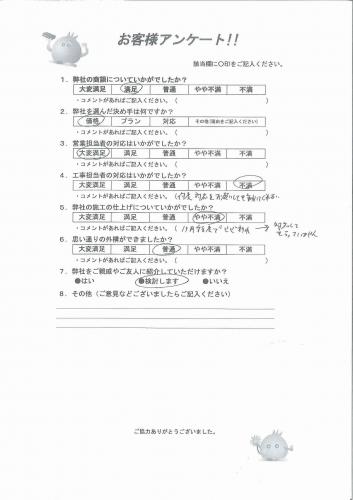 お客様アンケート!!
該当欄に○印をご記入ください。
1．弊社の商談についていかがでしたか？
大変満足 満足 普通 やや不満 不満
・コメントがあればご記入ください。（
2．弊社を選んだ決め手は何ですか？
価格 プラン 対応 その他(理由をご記入ください)
・コメントがあればご記入ください。（
3．営業担当者の対応はいかがでしたか？
大変満足 満足 普通 やや不満 不満
・コメントがあればご記入ください。（
4．工事担当者の対応はいかがでしたか？
大変満足 満足 普通 やや不満 不満
・コメントがあればご記入ください。（
5．弊社の施工の仕上げについていかがでしたか？
大変満足 満足 普通 やや不満 不満
・コメントがあればご記入ください。（
6．思い通りの外構ができましたか？
大変満足 満足 普通 やや不満 不満
・コメントがあればご記入ください。（
7．弊社をご親戚やご友人に紹介していただけますか？
●はい ●検討します ●いいえ
8．その他（ご意見などございましたらご記入ください）
ご協力ありがとうございました。